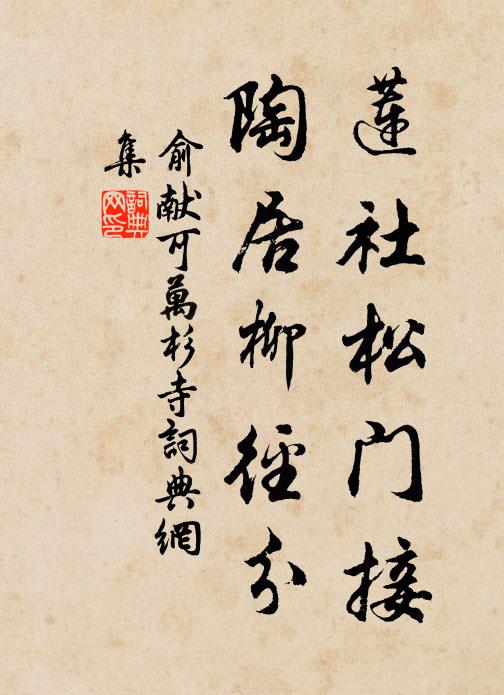 蓮社松门接
陶居柳徑分
俞献可萬杉寺詞典網
集
詞典
网印